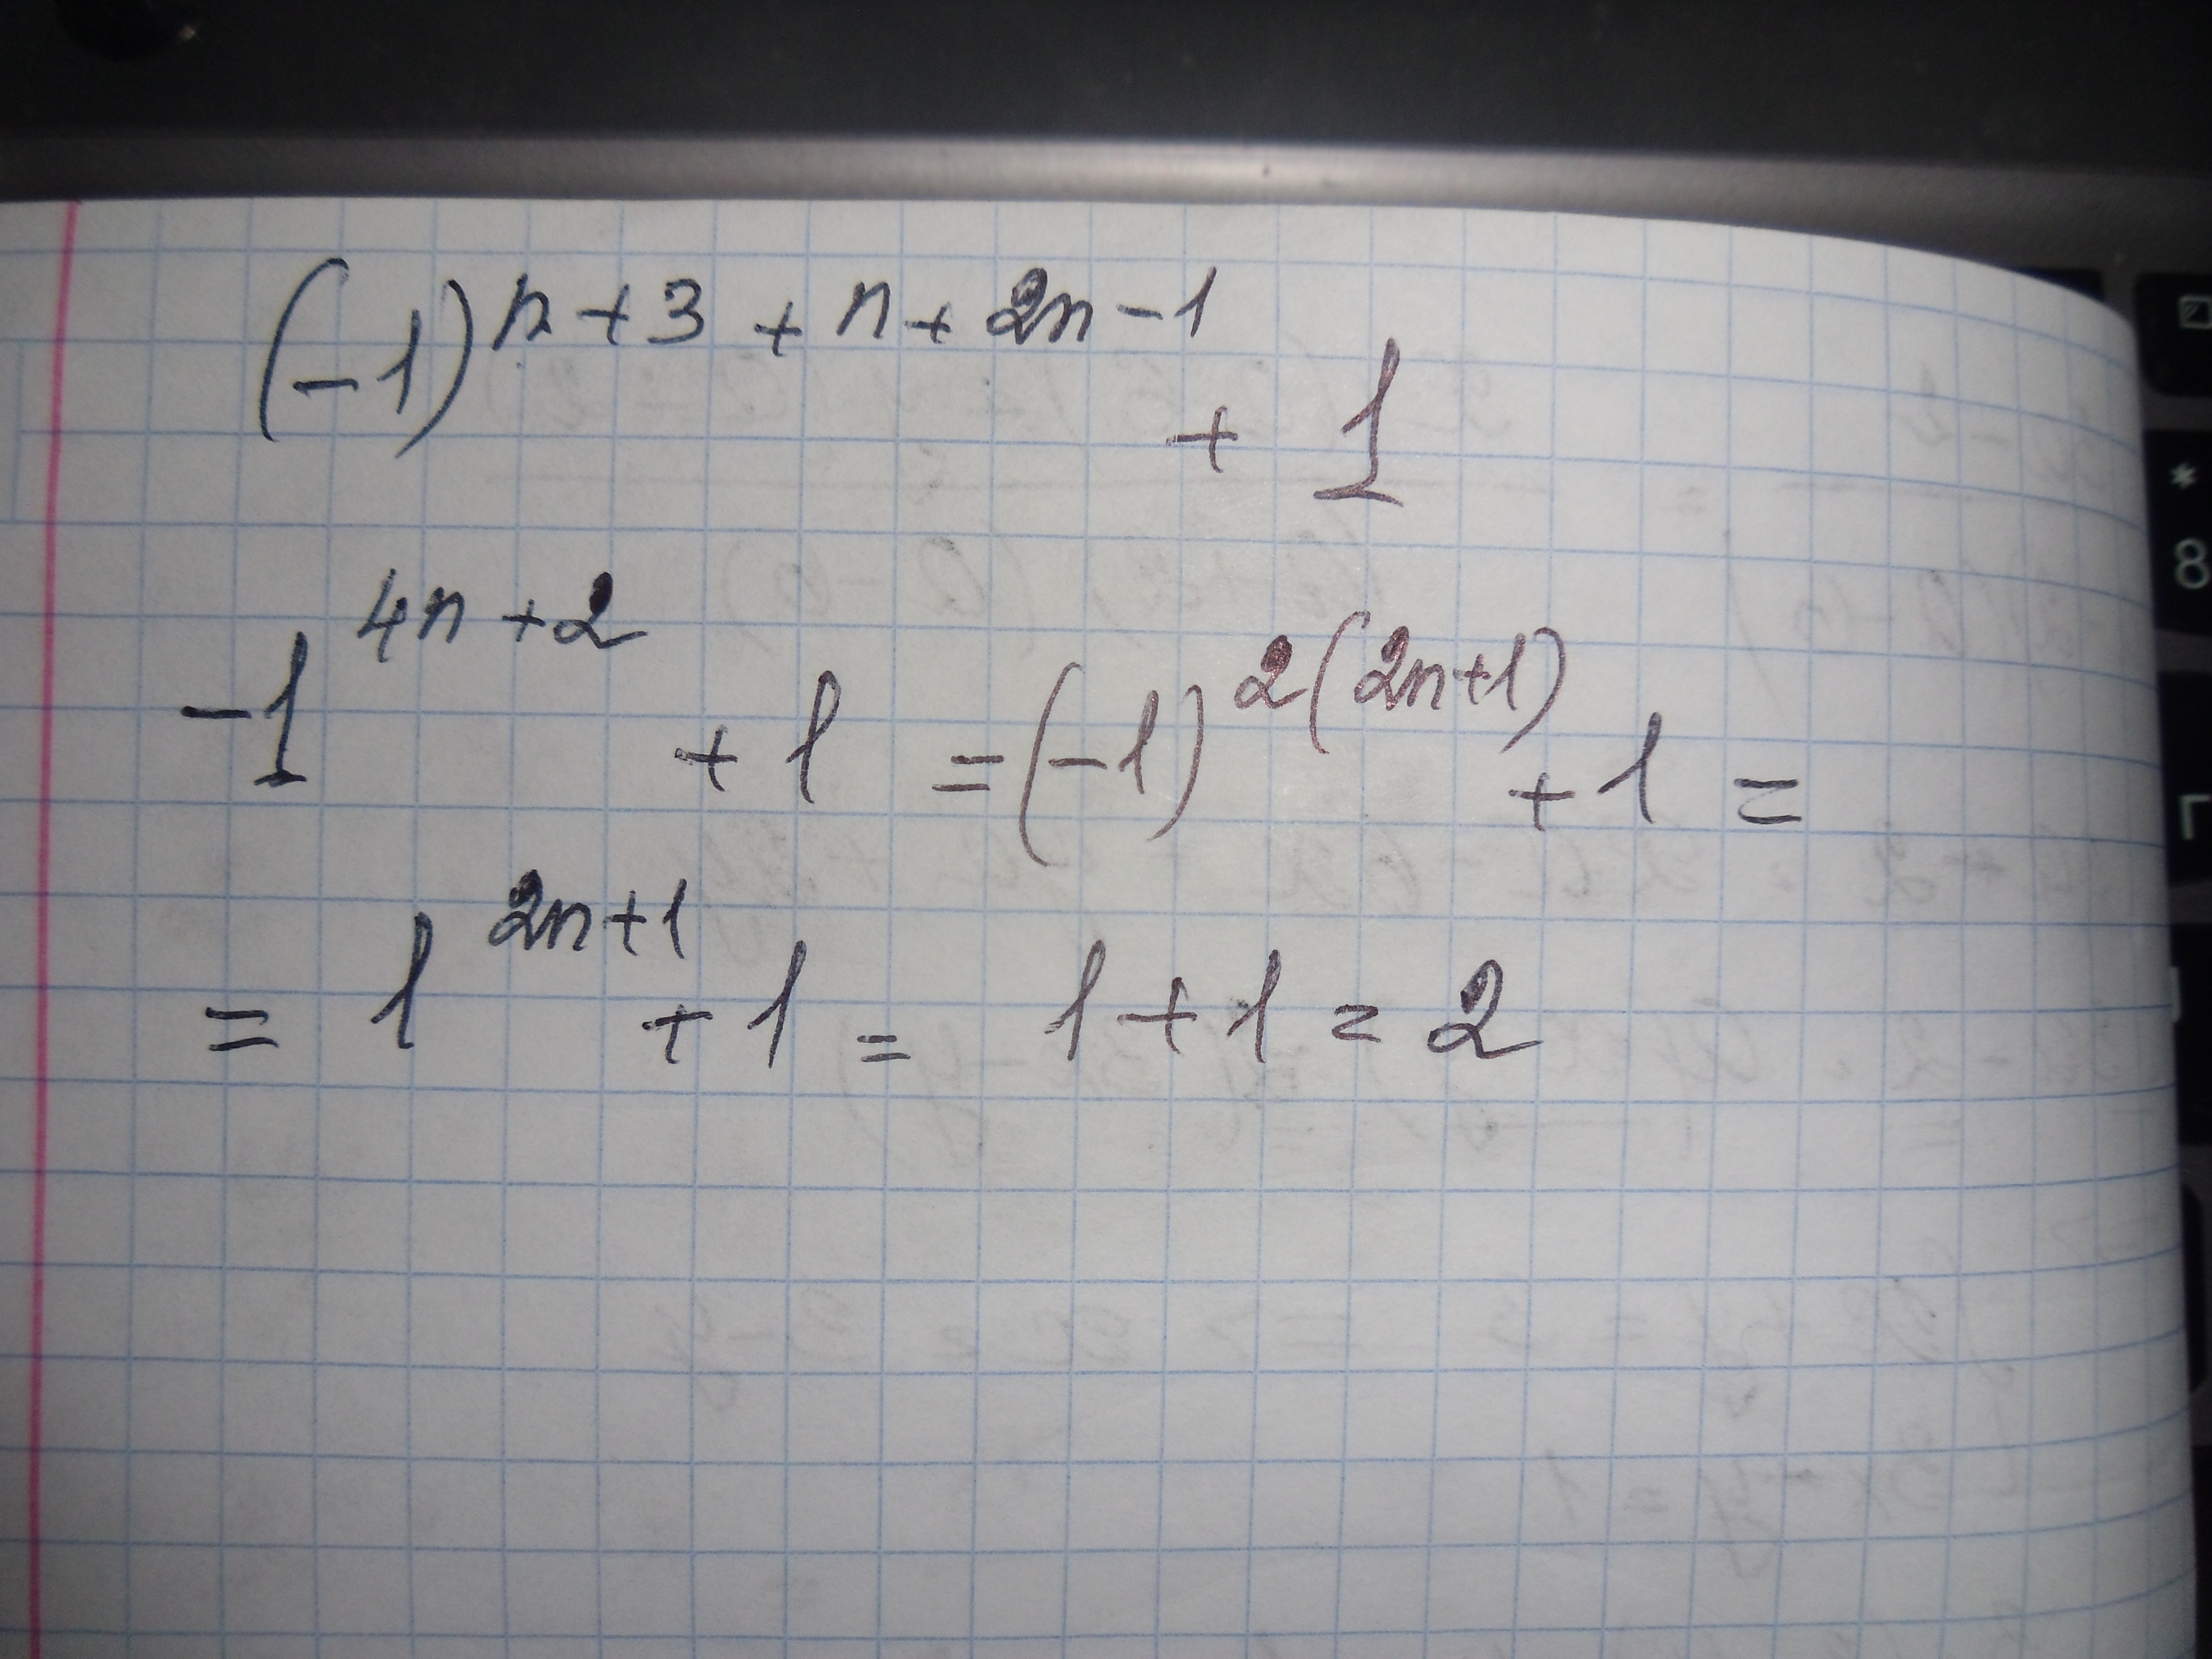 (-1)^{n+3+n+2n-1} + 1
-1^{4n+2} + 1 = (-1)^{2(2n+1)} + 1 =
= 1^{2n+1} + 1 = 1 + 1 = 2
* 8